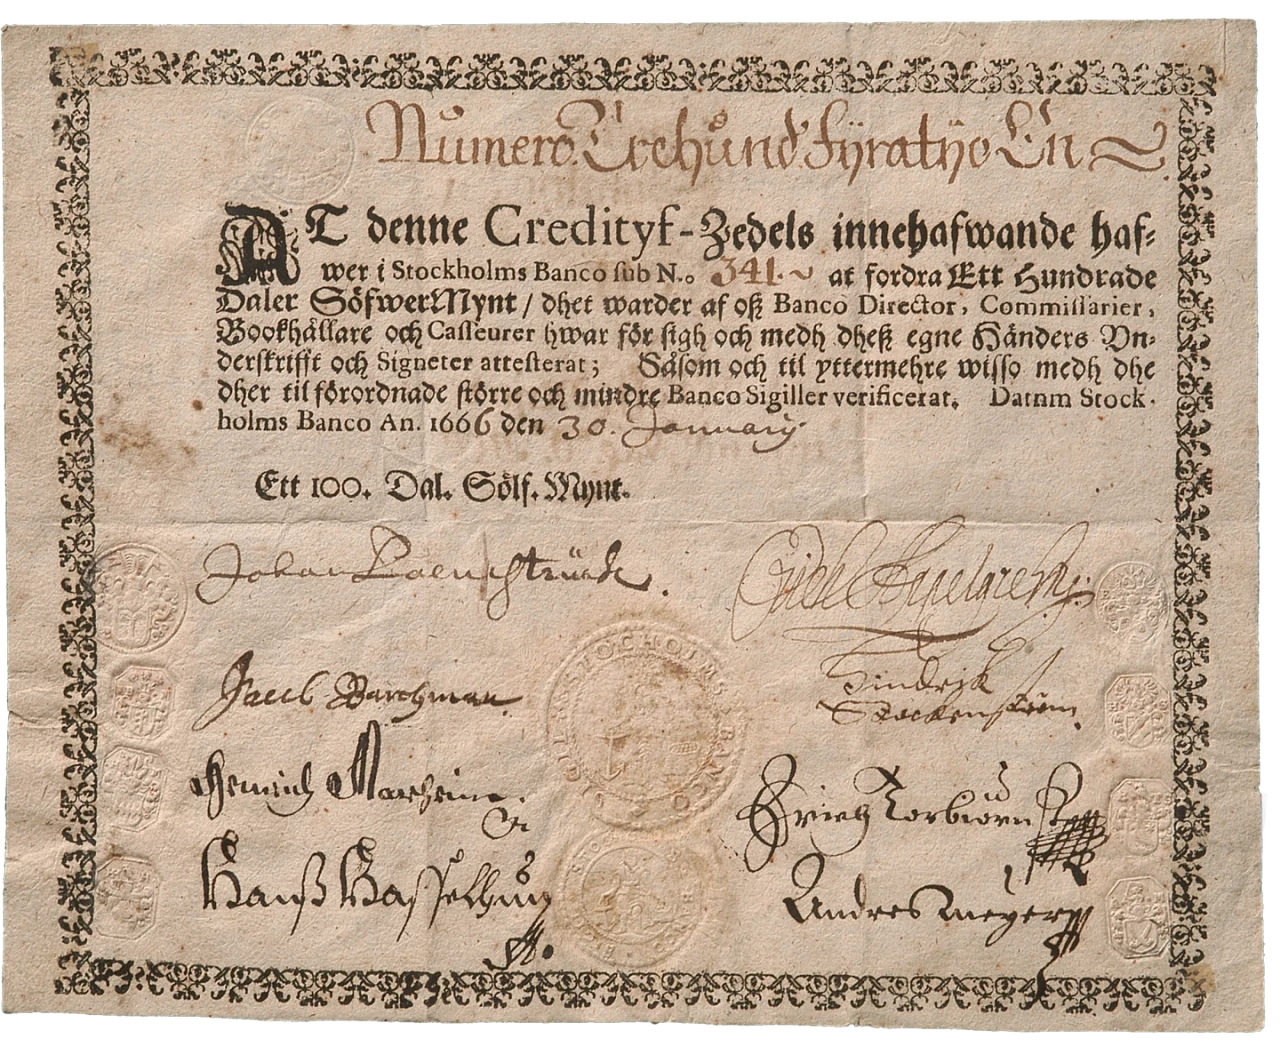 Numero Trehund Fÿratÿo En
AT denne Credityf-Zedels innehafwande haf-
wer i Stockholms Banco sub N.o 341. at fordra Ett Hundrade
Daler SöfwerMynt / dhet warder af oß Banco Director, Commissarier,
Bookhållare och Casseurer hwar för sigh och medh dheß egne Händers Vn-
derskrifft och Signeter attesterat; Såsom och til yttermehre wisso medh dhe
dher til förordnade större och mindre Banco Sigiller verificerat. Datnm Stock-
holms Banco An. 1666 den 30. January
Ett 100. Dal. Sölf. Mynt.
Johan
Jacob Barchman
Hindrik
Stockenström
Henrich
Erich Torbiörn
Hanß
Andres Meyer
STOCHOLMS BANCO